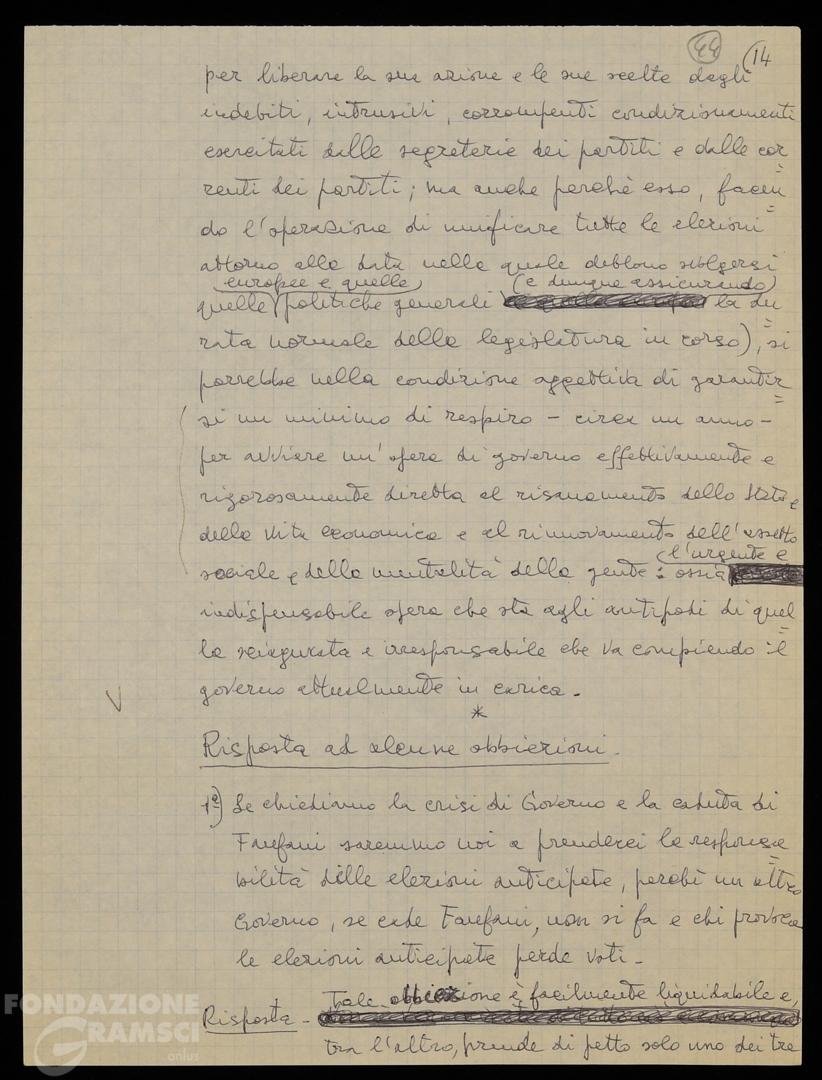 44 14
per liberare la sua azione e le sue scelte dagli
indebiti, intrusivi, corrompenti condizionamenti
esercitati dalle segreterie dei partiti e dalle cor=
renti dei partiti; ma anche perchè esso, facen=
do l'operazione di unificare tutte le elezioni
attorno alla data nella quale debbono svolgersi
europee e quelle (e dunque assicurando)
quelle politiche generali la du=
rata normale della legislatura in corso), si
porrebbe nella condizione oggettiva di garantir=
si un minimo di respiro - circa un anno -
per avviare un'opera di governo effettivamente e
rigorosamente diretta al risanamento dello Stato e
della vita economica e al rinnovamento dell'assetto
l'urgente e
sociale e della mentalità della gente: ossia
indispensabile opera che sta agli antipodi di quel=
la sciagurata e irresponsabile che va compiendo il
governo attualmente in carica.
*
Risposta ad alcune obbiezioni.
1ª) Se chiediamo la crisi di Governo e la caduta di
Fanfani saremmo noi a prenderci la responsa=
bilità delle elezioni anticipate, perchè un altro
Governo, se cade Fanfani, non si fa e chi provoca
le elezioni anticipate perde voti.
Tale obbiezione è facilmente liquidabile e,
Risposta -
tra l'altro, prende di petto solo uno dei tre
FONDAZIONE
GRAMSCI
onlus